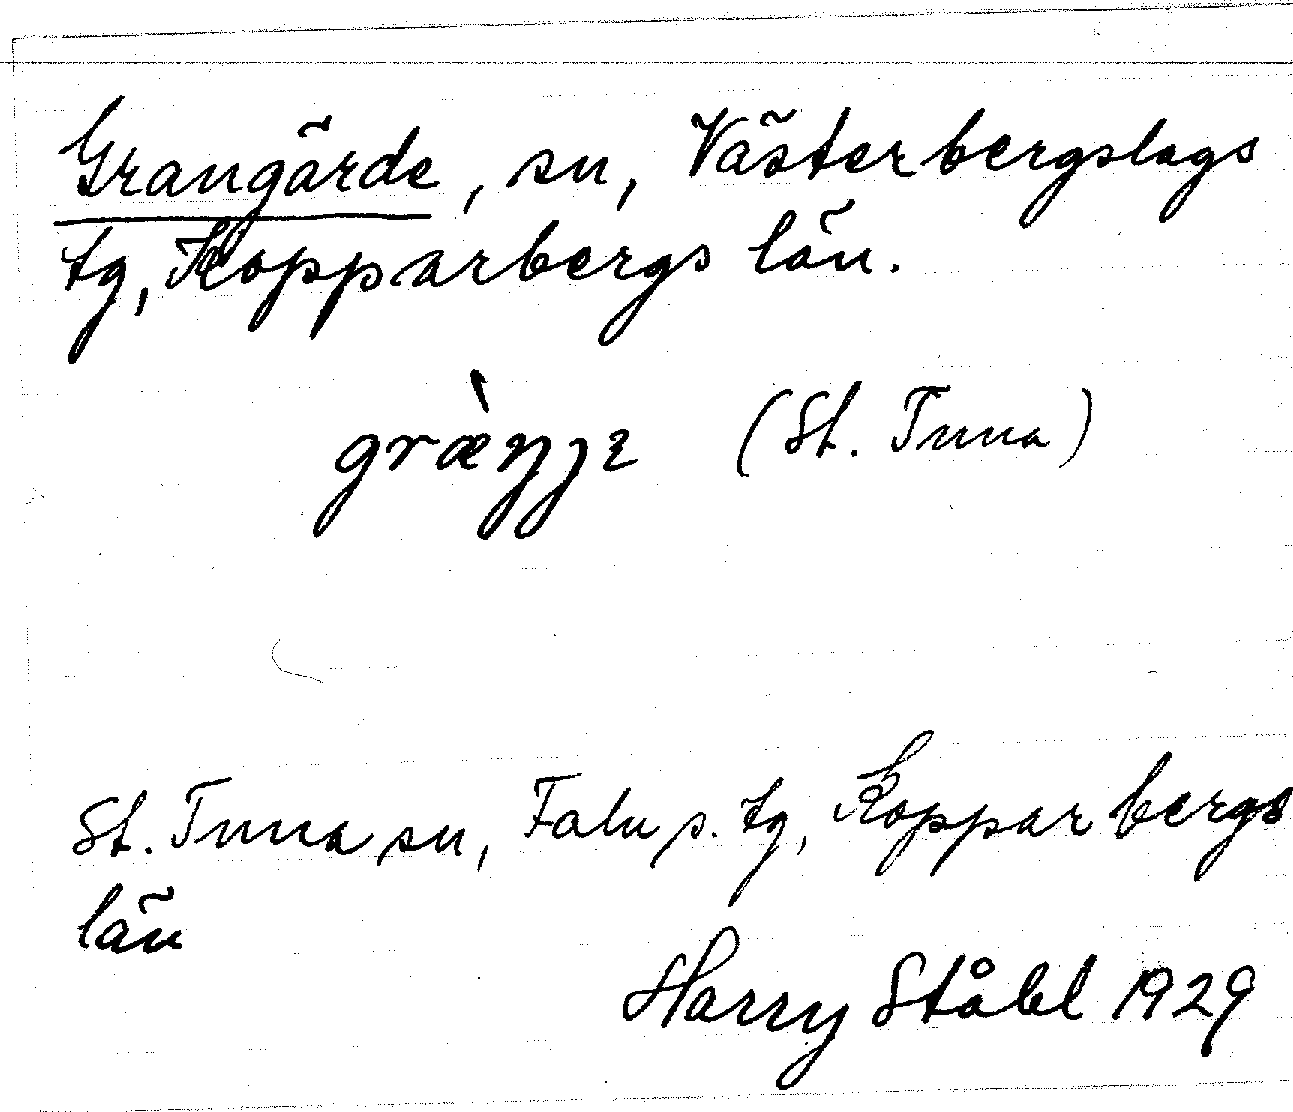 Grangärde, sn, Västerbergslags
tg, Kopparbergs län.
(St. Tuna)
St. Tuna sn, Falu s. tg, Kopparbergs
län
Harry Ståhl 1929